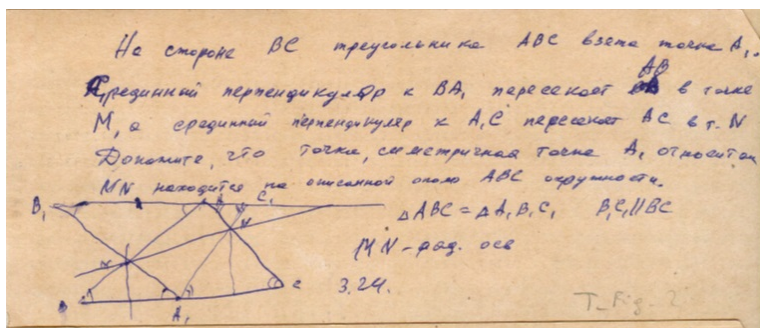 На стороне BC треугольника ABC взята точка A₁.
Срединный перпендикуляр к BA₁ пересекает AB в точке
M, а срединный перпендикуляр к A₁C пересекает AC в т. N
Докажите, что точка, симетричная точке A₁ относител
MN находится на описанной около ABC окружности.
B₁ A C₁
△ABC = △A₁B₁C₁ B₁C₁∥BC
M N
MN - рад. ось
B A₁ C
3.24.
T_Fig. 2